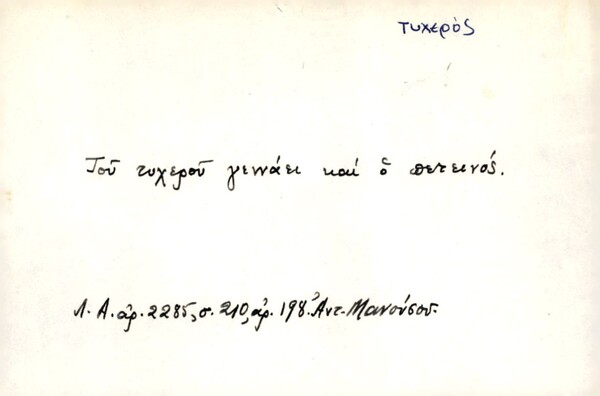 τυχερός
Τοῦ τυχεροῦ γεννάει καί ὁ πετεινός.
Λ. Α. ἀρ. 2285, σ. 210, ἀρ. 198. Ἀντ. Μανούσου.